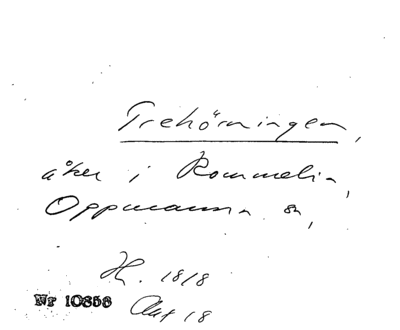 Trehörningen,
åker i Rommelin,
Oppmanna sn,
H. 1818
Akt 18
Nr 10856